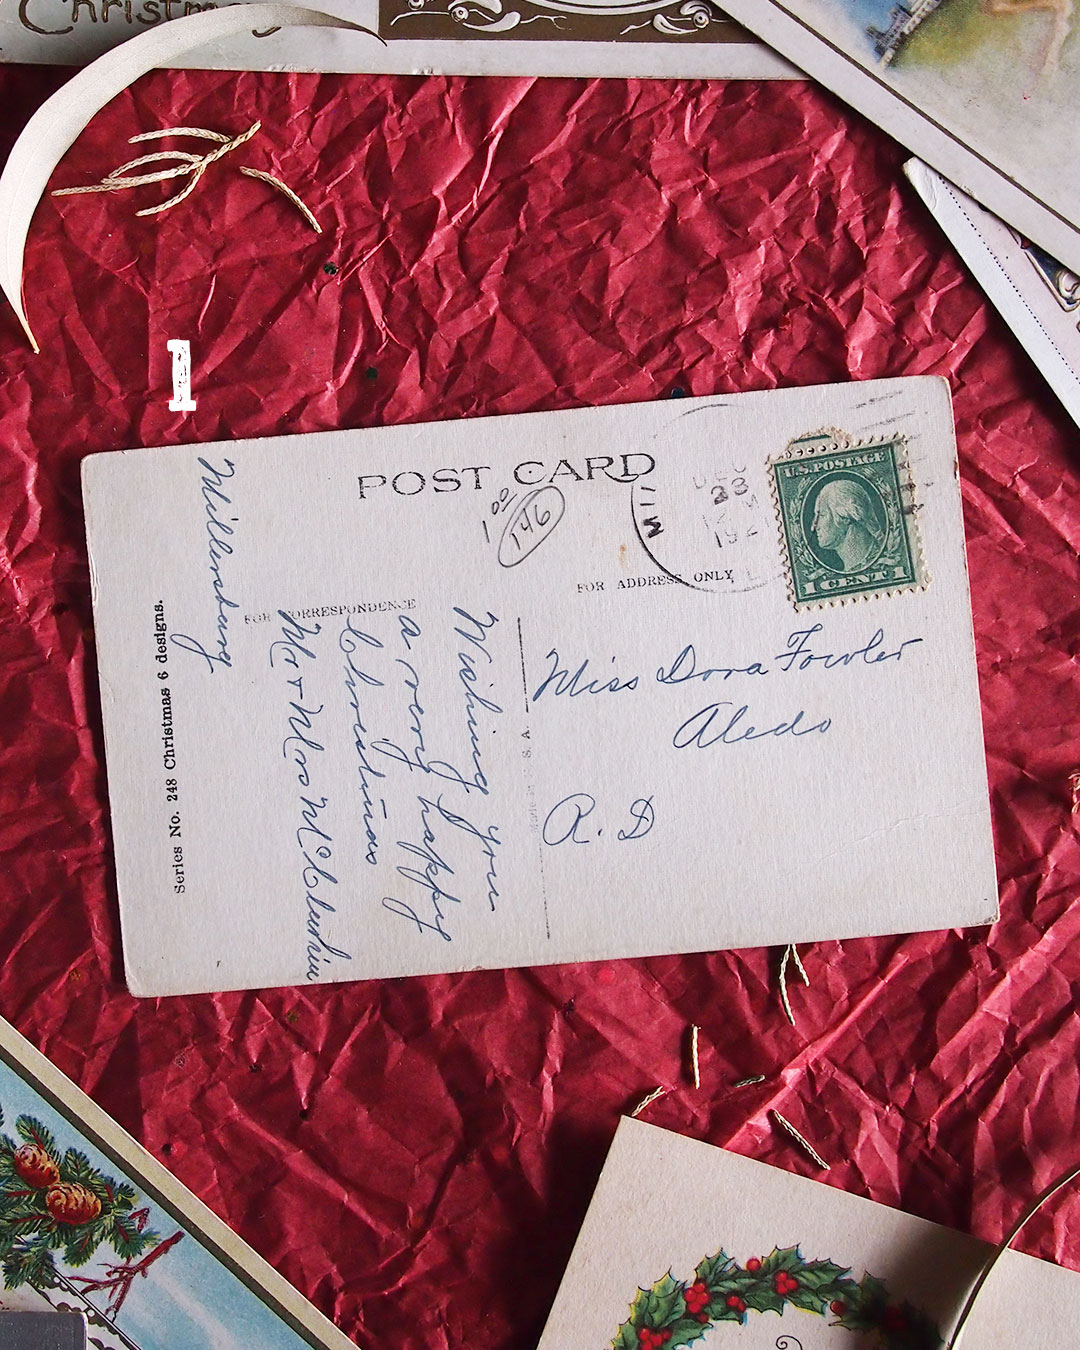 Christmas
1
POST CARD
1 00
146
DEC
23
12 M
1921
U.S. POSTAGE
1 CENT 1
FOR ADDRESS ONLY
FOR CORRESPONDENCE
Millersburg
Wishing you
a very happy
Christmas
Mr + Mrs
Miss Dora Fowler
Aledo
R. D
Series No. 248 Christmas 6 designs.